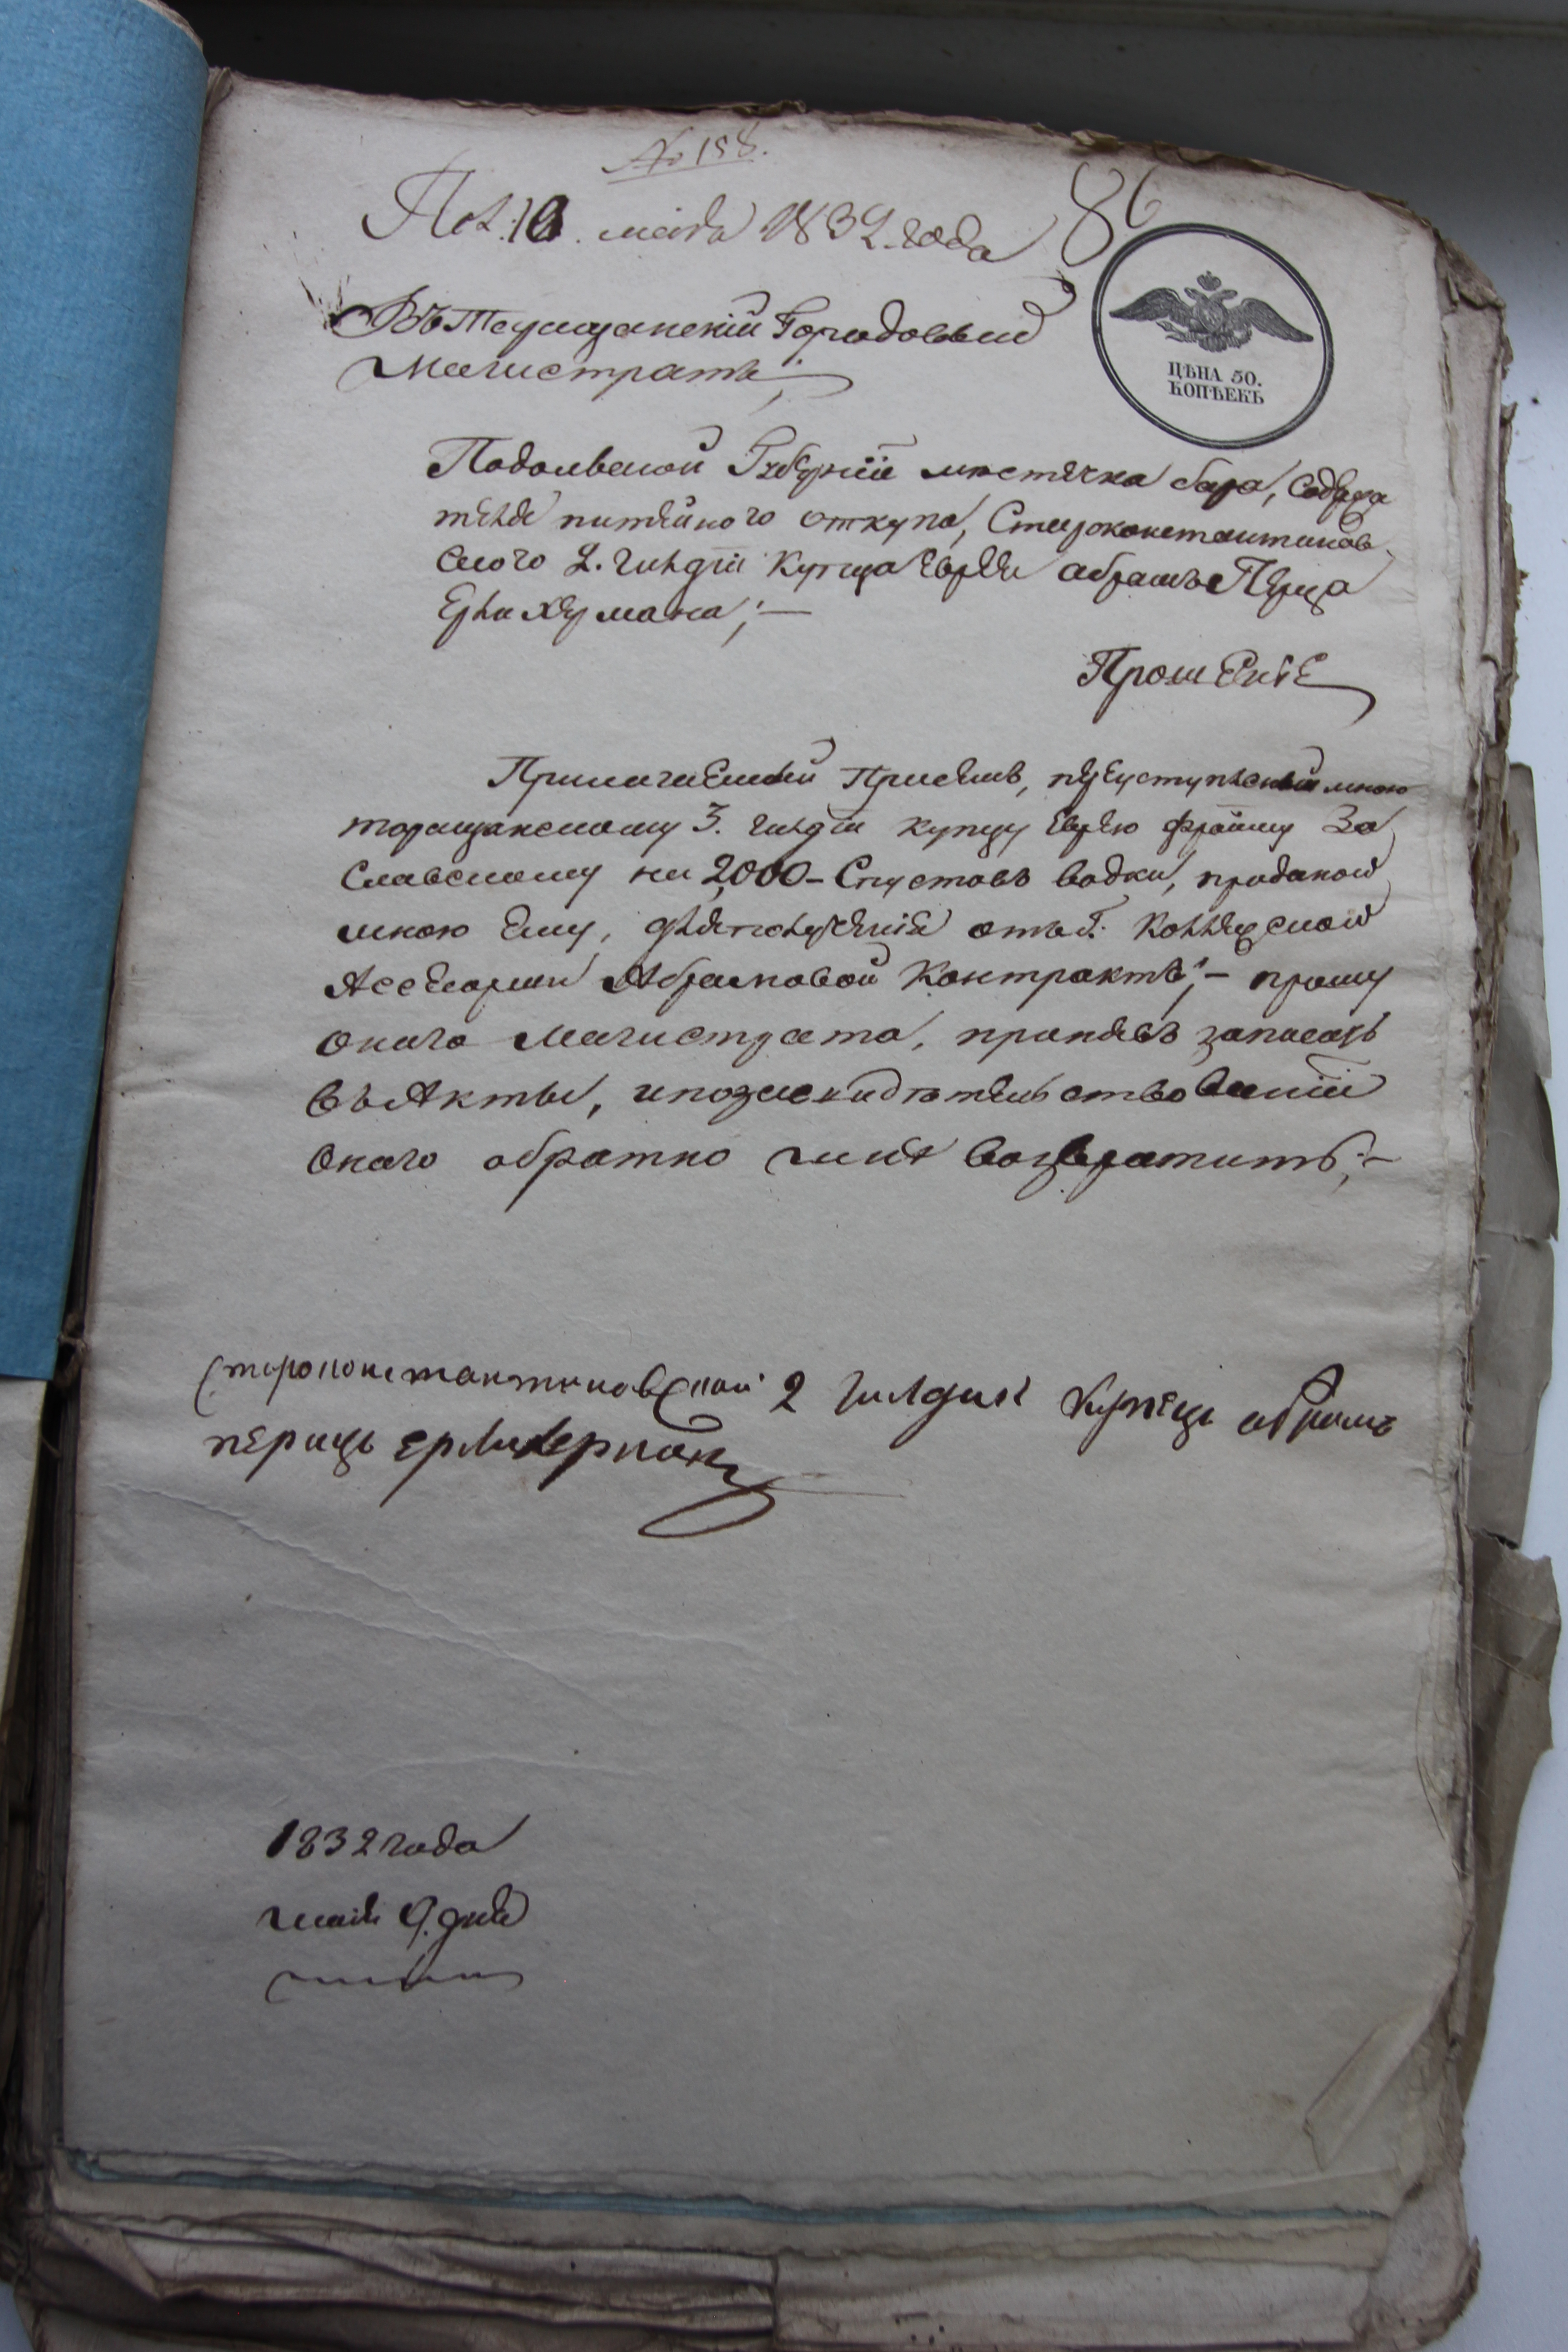 № 158.
Пол. 10. маія 1832 года
86
Въ Таращанскій Городовый
Магистратъ;
ЦѢНА 50.
КОПѢЕКЪ
Подольской Губерніи мѣстечка бара, Содержа
теля питейного откупа, Староконстантинов-
ского 2. гилдіи Купца Еврея абрамъ Перца
Ерлихермана;—
Прошеніе
Прилагаемый Приемъ, переуступленный мною
таращанскому 3. гилдіи купцу Еврею фроиму За
Славскому на 2000 - водки, проданой
мною Ему, для полученія отъ Г. Коллежской
Ассесорши Абрамовой Контрактъ;- прошу
оного Магистрата, принявъ записать
въ Акты, и по засвидѣтельствованіи
оного обратно мнѣ возвратить;-
Староконстантиновской 2 гилдии Купецъ абрамъ
перицъ ерлихерман
1832 года
маія 9. дня